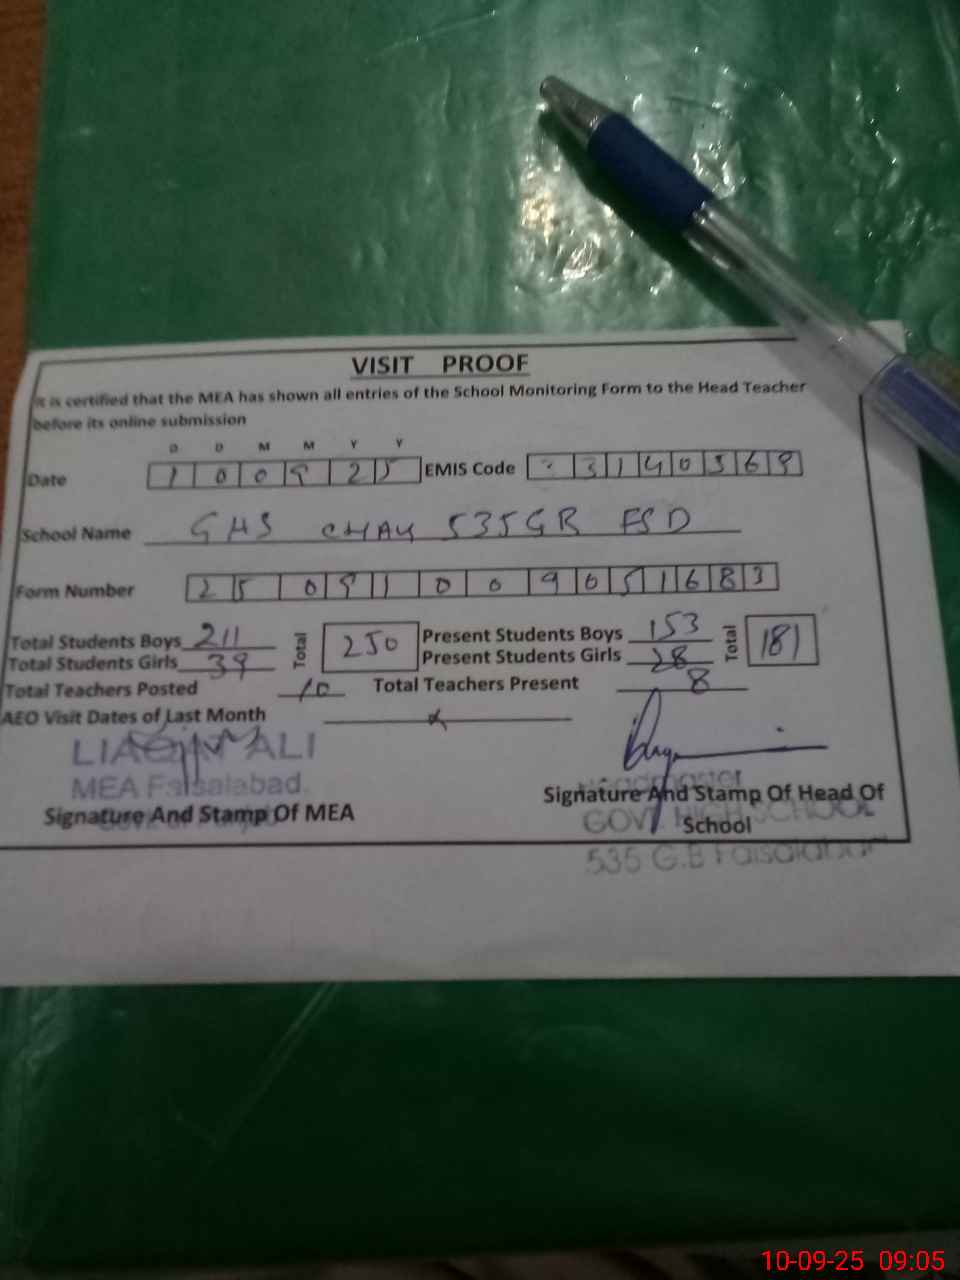 VISIT PROOF
It is certified that the MEA has shown all entries of the School Monitoring Form to the Head Teacher
before its online submission
D D M M Y Y
Date 1 0 0 9 2 5 EMIS Code 3 1 4 0 3 6 9
School Name GHS CHAK 535GB FSD
Form Number 2 5 0 9 1 0 0 9 0 5 1 6 8 3
Total Students Boys 211 Total 250 Present Students Boys 153 Total 181
Total Students Girls 39 Present Students Girls 28
Total Teachers Posted 10 Total Teachers Present 8
AEO Visit Dates of Last Month x
LIAQAT ALI
MEA Faisalabad.
Signature And Stamp Of MEA
Headmaster
Signature And Stamp Of Head Of
School
GOVT HIGH SCHOOL
535 G.B Faisalabad
10-09-25 09:05